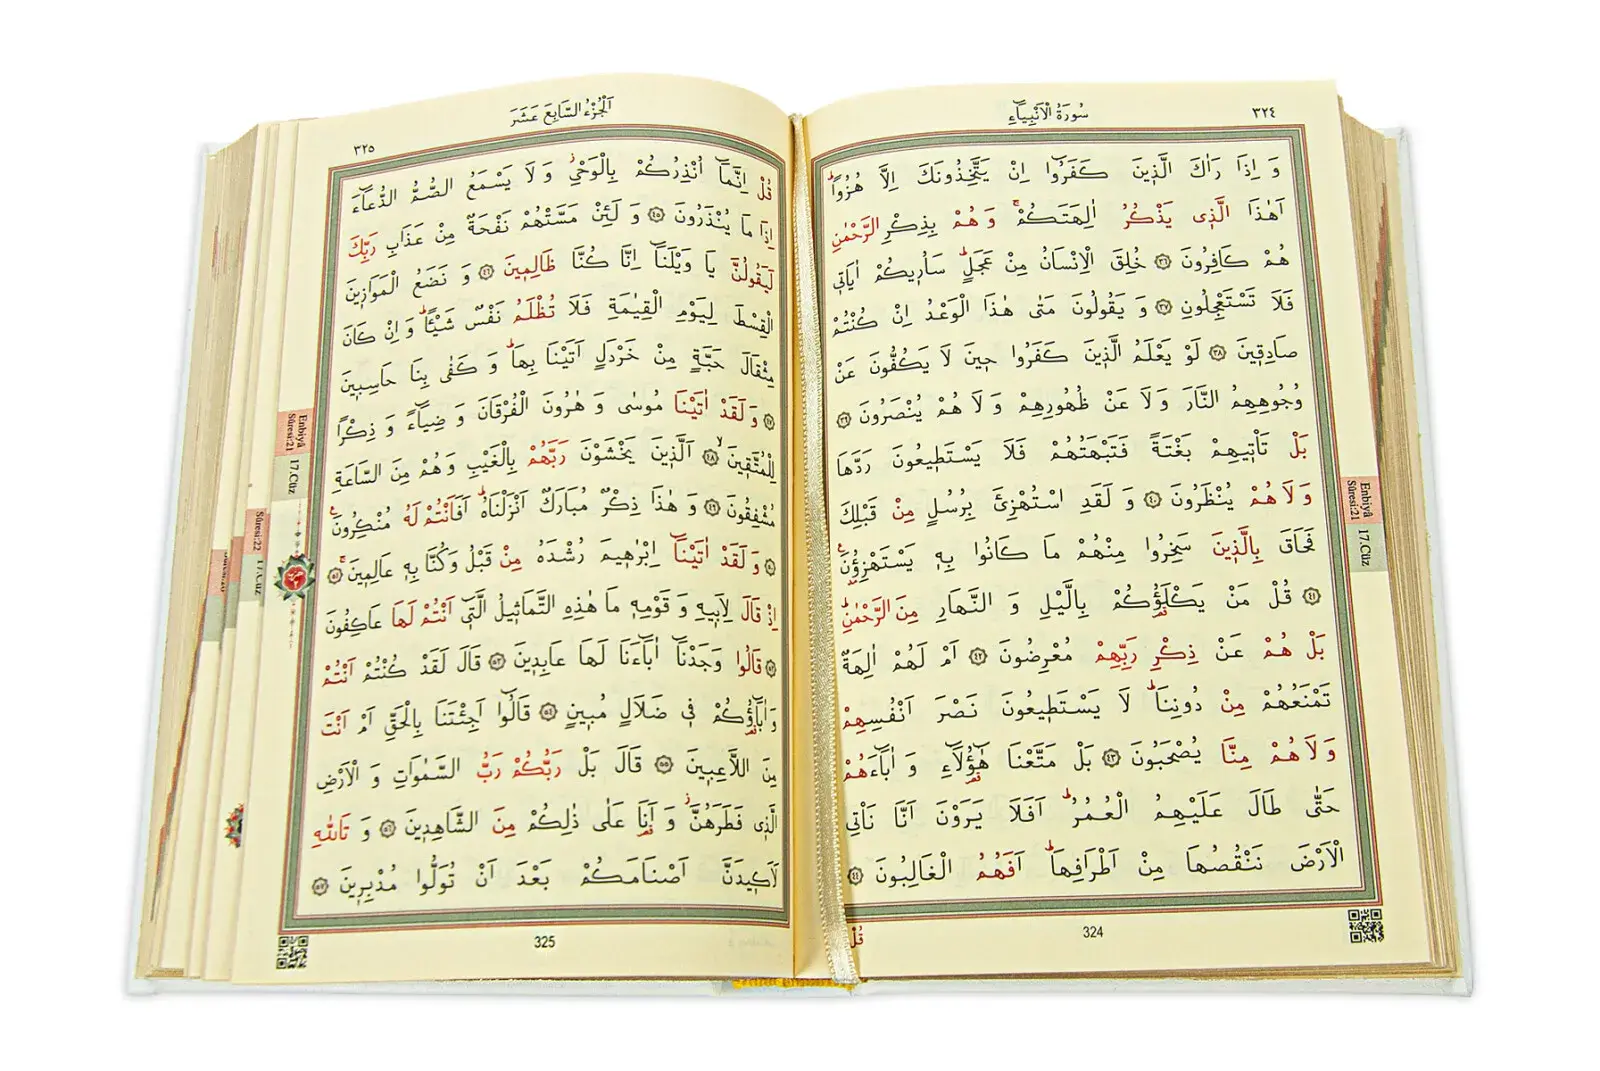 ٣٢٤
سُورَةُ الْاَنْبِيَاءِ
وَ اِذَا رَاٰكَ الَّذٖينَ كَفَرُٓوا اِنْ يَتَّخِذُونَكَ اِلَّا هُزُوًاۜ
اَهٰذَا الَّذٖى يَذْكُرُ اٰلِهَتَكُمْۚ وَ هُمْ بِذِكْرِ الرَّحْمٰنِ
هُمْ كَافِرُونَ ﴿٣٦﴾ خُلِقَ الْاِنْسَانُ مِنْ عَجَلٍۜ سَاُرٖيكُمْ اٰيَاتٖى
فَلَا تَسْتَعْجِلُونِ ﴿٣٧﴾ وَ يَقُولُونَ مَتٰى هٰذَا الْوَعْدُ اِنْ كُنْتُمْ
صَادِقٖينَ ﴿٣٨﴾ لَوْ يَعْلَمُ الَّذٖينَ كَفَرُوا حٖينَ لَا يَكُفُّونَ عَنْ
وُجُوهِهِمُ النَّارَ وَ لَا عَنْ ظُهُورِهِمْ وَ لَا هُمْ يُنْصَرُونَ ﴿٣٩﴾
بَلْ تَأْتٖيهِمْ بَغْتَةً فَتَبْهَتُهُمْ فَلَا يَسْتَطٖيعُونَ رَدَّهَا
وَ لَا هُمْ يُنْظَرُونَ ﴿٤٠﴾ وَ لَقَدِ اسْتُهْزِئَ بِرُسُلٍ مِنْ قَبْلِكَ
فَحَاقَ بِالَّذٖينَ سَخِرُوا مِنْهُمْ مَا كَانُوا بِهٖ يَسْتَهْزِؤُنَ
﴿٤١﴾ قُلْ مَنْ يَكْلَؤُكُمْ بِالَّيْلِ وَ النَّهَارِ مِنَ الرَّحْمٰنِۜ
بَلْ هُمْ عَنْ ذِكْرِ رَبِّهِمْ مُعْرِضُونَ ﴿٤٢﴾ اَمْ لَهُمْ اٰلِهَةٌ
تَمْنَعُهُمْ مِنْ دُونِنَاۜ لَا يَسْتَطٖيعُونَ نَصْرَ اَنْفُسِهِمْ
وَ لَا هُمْ مِنَّا يُصْحَبُونَ ﴿٤٣﴾ بَلْ مَتَّعْنَا هٰٓؤُلَاءِ وَ اٰبَاءَهُمْ
حَتّٰى طَالَ عَلَيْهِمُ الْعُمُرُۜ اَفَلَا يَرَوْنَ اَنَّا نَأْتِى
الْاَرْضَ نَنْقُصُهَا مِنْ اَطْرَافِهَاۜ اَفَهُمُ الْغَالِبُونَ ﴿٤٤﴾
قُلْ
324
Enbiyâ
Sûresi:21
17.Cüz
اَلْجُزْءُ السَّابِعَ عَشَرَ
٣٢٥
قُلْ اِنَّمَٓا اُنْذِرُكُمْ بِالْوَحْىِۘ وَ لَا يَسْمَعُ الصُّمُّ الدُّعَاءَ
اِذَا مَا يُنْذَرُونَ ﴿٤٥﴾ وَ لَئِنْ مَسَّتْهُمْ نَفْحَةٌ مِنْ عَذَابِ رَبِّكَ
لَيَقُولُنَّ يَا وَيْلَنَٓا اِنَّا كُنَّا ظَالِمٖينَ ﴿٤٦﴾ وَ نَضَعُ الْمَوَازٖينَ
الْقِسْطَ لِيَوْمِ الْقِيٰمَةِ فَلَا تُظْلَمُ نَفْسٌ شَيْپًٔاۜ وَ اِنْ كَانَ
مِثْقَالَ حَبَّةٍ مِنْ خَرْدَلٍ اَتَيْنَا بِهَاۜ وَ كَفٰى بِنَا حَاسِبٖينَ
﴿٤٧﴾ وَ لَقَدْ اٰتَيْنَا مُوسٰى وَ هٰرُونَ الْفُرْقَانَ وَ ضِيَاءً وَ ذِكْرًا
لِلْمُتَّقٖينَۙ ﴿٤٨﴾ اَلَّذٖينَ يَخْشَوْنَ رَبَّهُمْ بِالْغَيْبِ وَ هُمْ مِنَ السَّاعَةِ
مُشْفِقُونَ ﴿٤٩﴾ وَ هٰذَا ذِكْرٌ مُبَارَكٌ اَنْزَلْنَاهُۜ اَفَاَنْتُمْ لَهُ مُنْكِرُونَ
﴿٥٠﴾ وَ لَقَدْ اٰتَيْنَٓا اِبْرٰهٖيمَ رُشْدَهُ مِنْ قَبْلُ وَ كُنَّا بِهٖ عَالِمٖينَۚ ﴿٥١﴾
اِذْ قَالَ لِاَبٖيهِ وَ قَوْمِهٖ مَا هٰذِهِ التَّمَاثٖيلُ الَّتٖٓى اَنْتُمْ لَهَا عَاكِفُونَ
﴿٥٢﴾ قَالُوا وَجَدْنَٓا اٰبَاءَنَا لَهَا عَابِدٖينَ ﴿٥٣﴾ قَالَ لَقَدْ كُنْتُمْ اَنْتُمْ
وَ اٰبَاؤُكُمْ فٖى ضَلَالٍ مُبٖينٍ ﴿٥٤﴾ قَالُٓوا اَجِئْتَنَا بِالْحَقِّ اَمْ اَنْتَ
مِنَ اللَّاعِبٖينَ ﴿٥٥﴾ قَالَ بَلْ رَبُّكُمْ رَبُّ السَّمٰوَاتِ وَ الْاَرْضِ
الَّذٖى فَطَرَهُنَّۘ وَ اَنَا عَلٰى ذٰلِكُمْ مِنَ الشَّاهِدٖينَ ﴿٥٦﴾ وَ تَاللّٰهِ
لَاَكٖيدَنَّ اَصْنَامَكُمْ بَعْدَ اَنْ تُوَلُّوا مُدْبِرٖينَ ﴿٥٧﴾
325
Enbiyâ
Sûresi:21
17.Cüz
Sûresi:22
17.Cüz